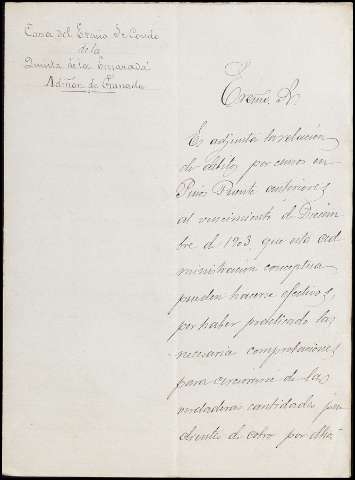 Casa del Excmo Sr. Conde
de la
Quinta de la Enjarada
Admón de Granada
Excmo. Sr.
Es adjunta la relación
de débitos por censos en
Pinos Puente anteriores
al vencimiento de Diciem
bre de 1903 que esta ad
ministración conceptua
pueden hacerse efectivos,
por haber practicado las
necesarias comprobaciones
para cerciorarse de las
verdaderas cantidades pen
dientes de cobro por dicho